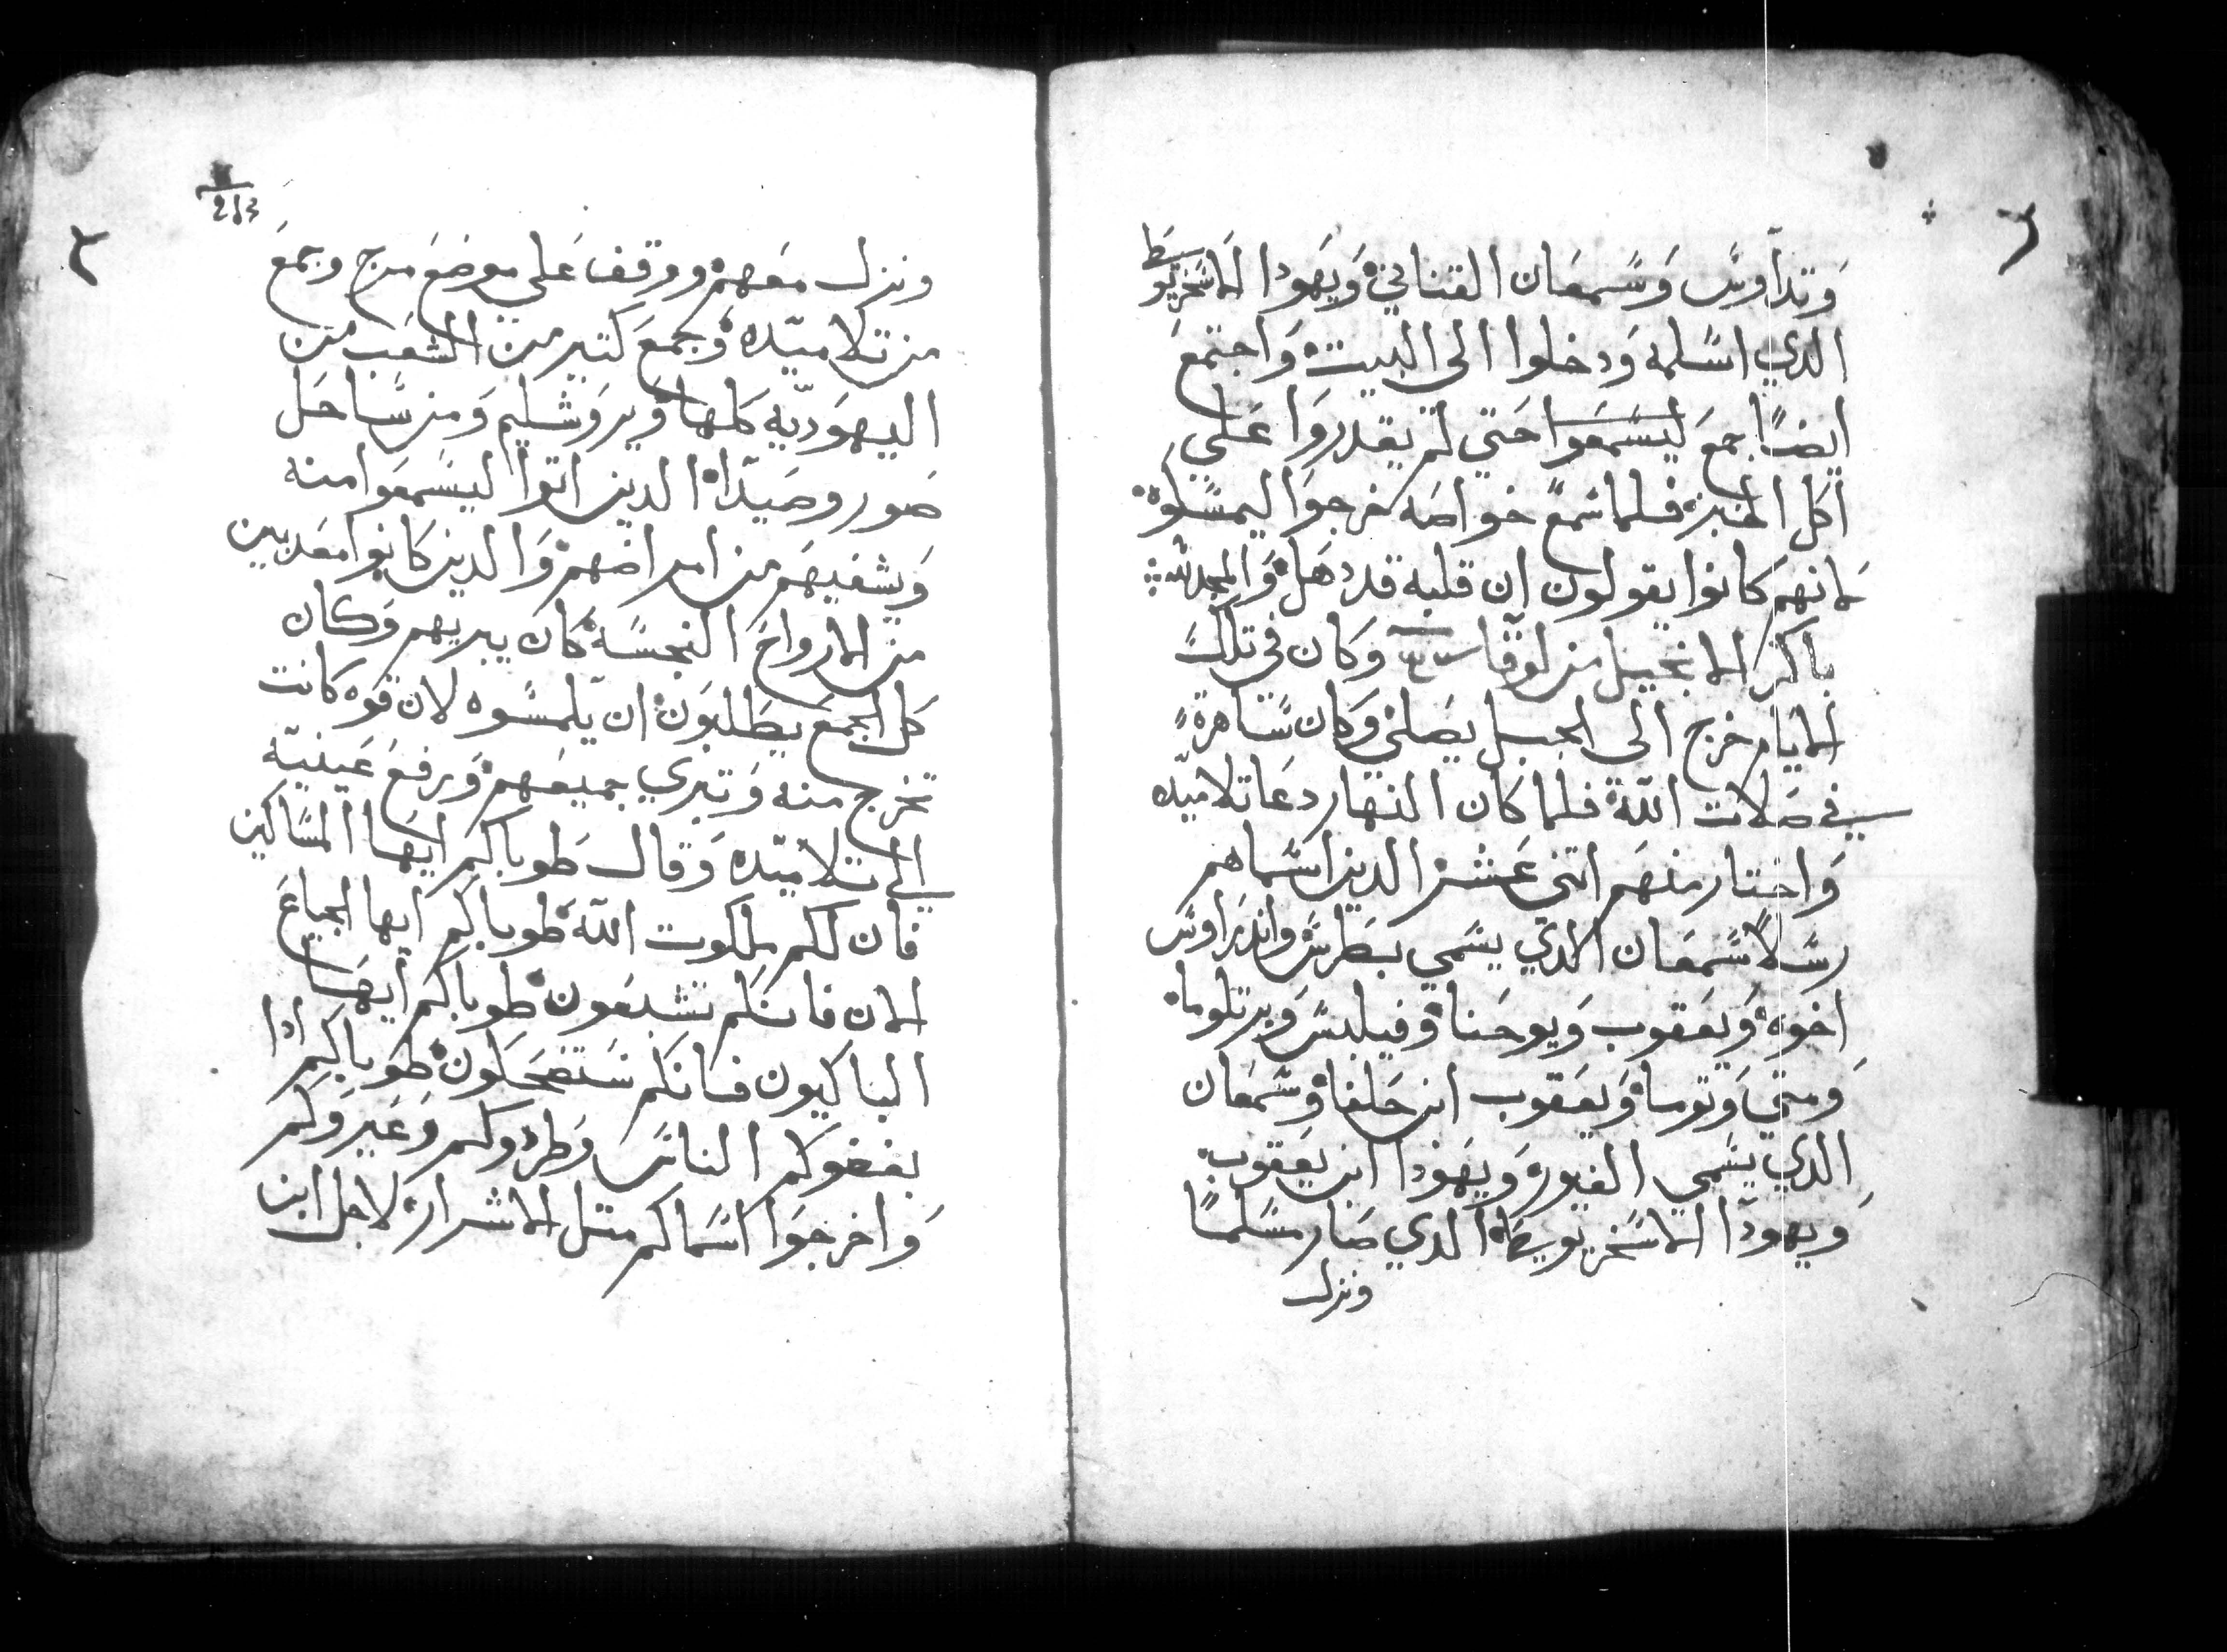 وتداوس وسمعان القناني ويهودا الاسخريوسط
الدي اسلمه ودخلوا الى البيت واجتمع
ايضًا جمع ليسمعوا حتي لم يقدروا علي
اكل الخبز فلما سمع خواصه خرجوا ليمسلوه
لانهم كانوا يقولون ان قلبه قد دهل والمجد لله
باكر الانجيل من لوقا وكان في تلك
الايام خرج الى الجبل يصلي وكان ساهرة
في صلات الله فلما كان النهار دعا تلاميده
واختار منهم اتنى عشر الدين اسماهم
رسلًا سمعان الدي يسمي بطرس واندراوس
اخوه ويعقوب ويوحنا وفيلبس وبرتلوما
ومتي وتوما ويعقوب ابن حلفا وسمعان
الدي يسمي الغيور ويهودا ابن يعقوب
ويهودا الاسخريوطا الدي صار مسلمًا
ونزل
213
ونزل معهم ووقف علي موضع مرج وجمع
من تلاميده وجمع كتير من الشعب من
اليهوديه كلها ويروشليم ومن ساحل
صور وصيدا الدين اتوا ليسمعوا منه
ويشفيهم من امراضهم والدين كانوا معدبين
من الارواح النجسه كان يبريهم وكان
كل الجمع يطلبون ان يلمسوه لان قوه كانت
تخرج منه وتبري جميعهم ورفع عينيه
الي تلاميده وقال طوباكم ايها المساكين
فان لكم ملكوت الله طوباكم ايها الجياع
الان فانكم تشبعون طوباكم ايها
الباكيون فانكم ستضحكون طوباكم ادا
بغضوكم الناس وطردوكم وعيروكم
واخرجوا اسماكم متل الاشرار لاجل ابن